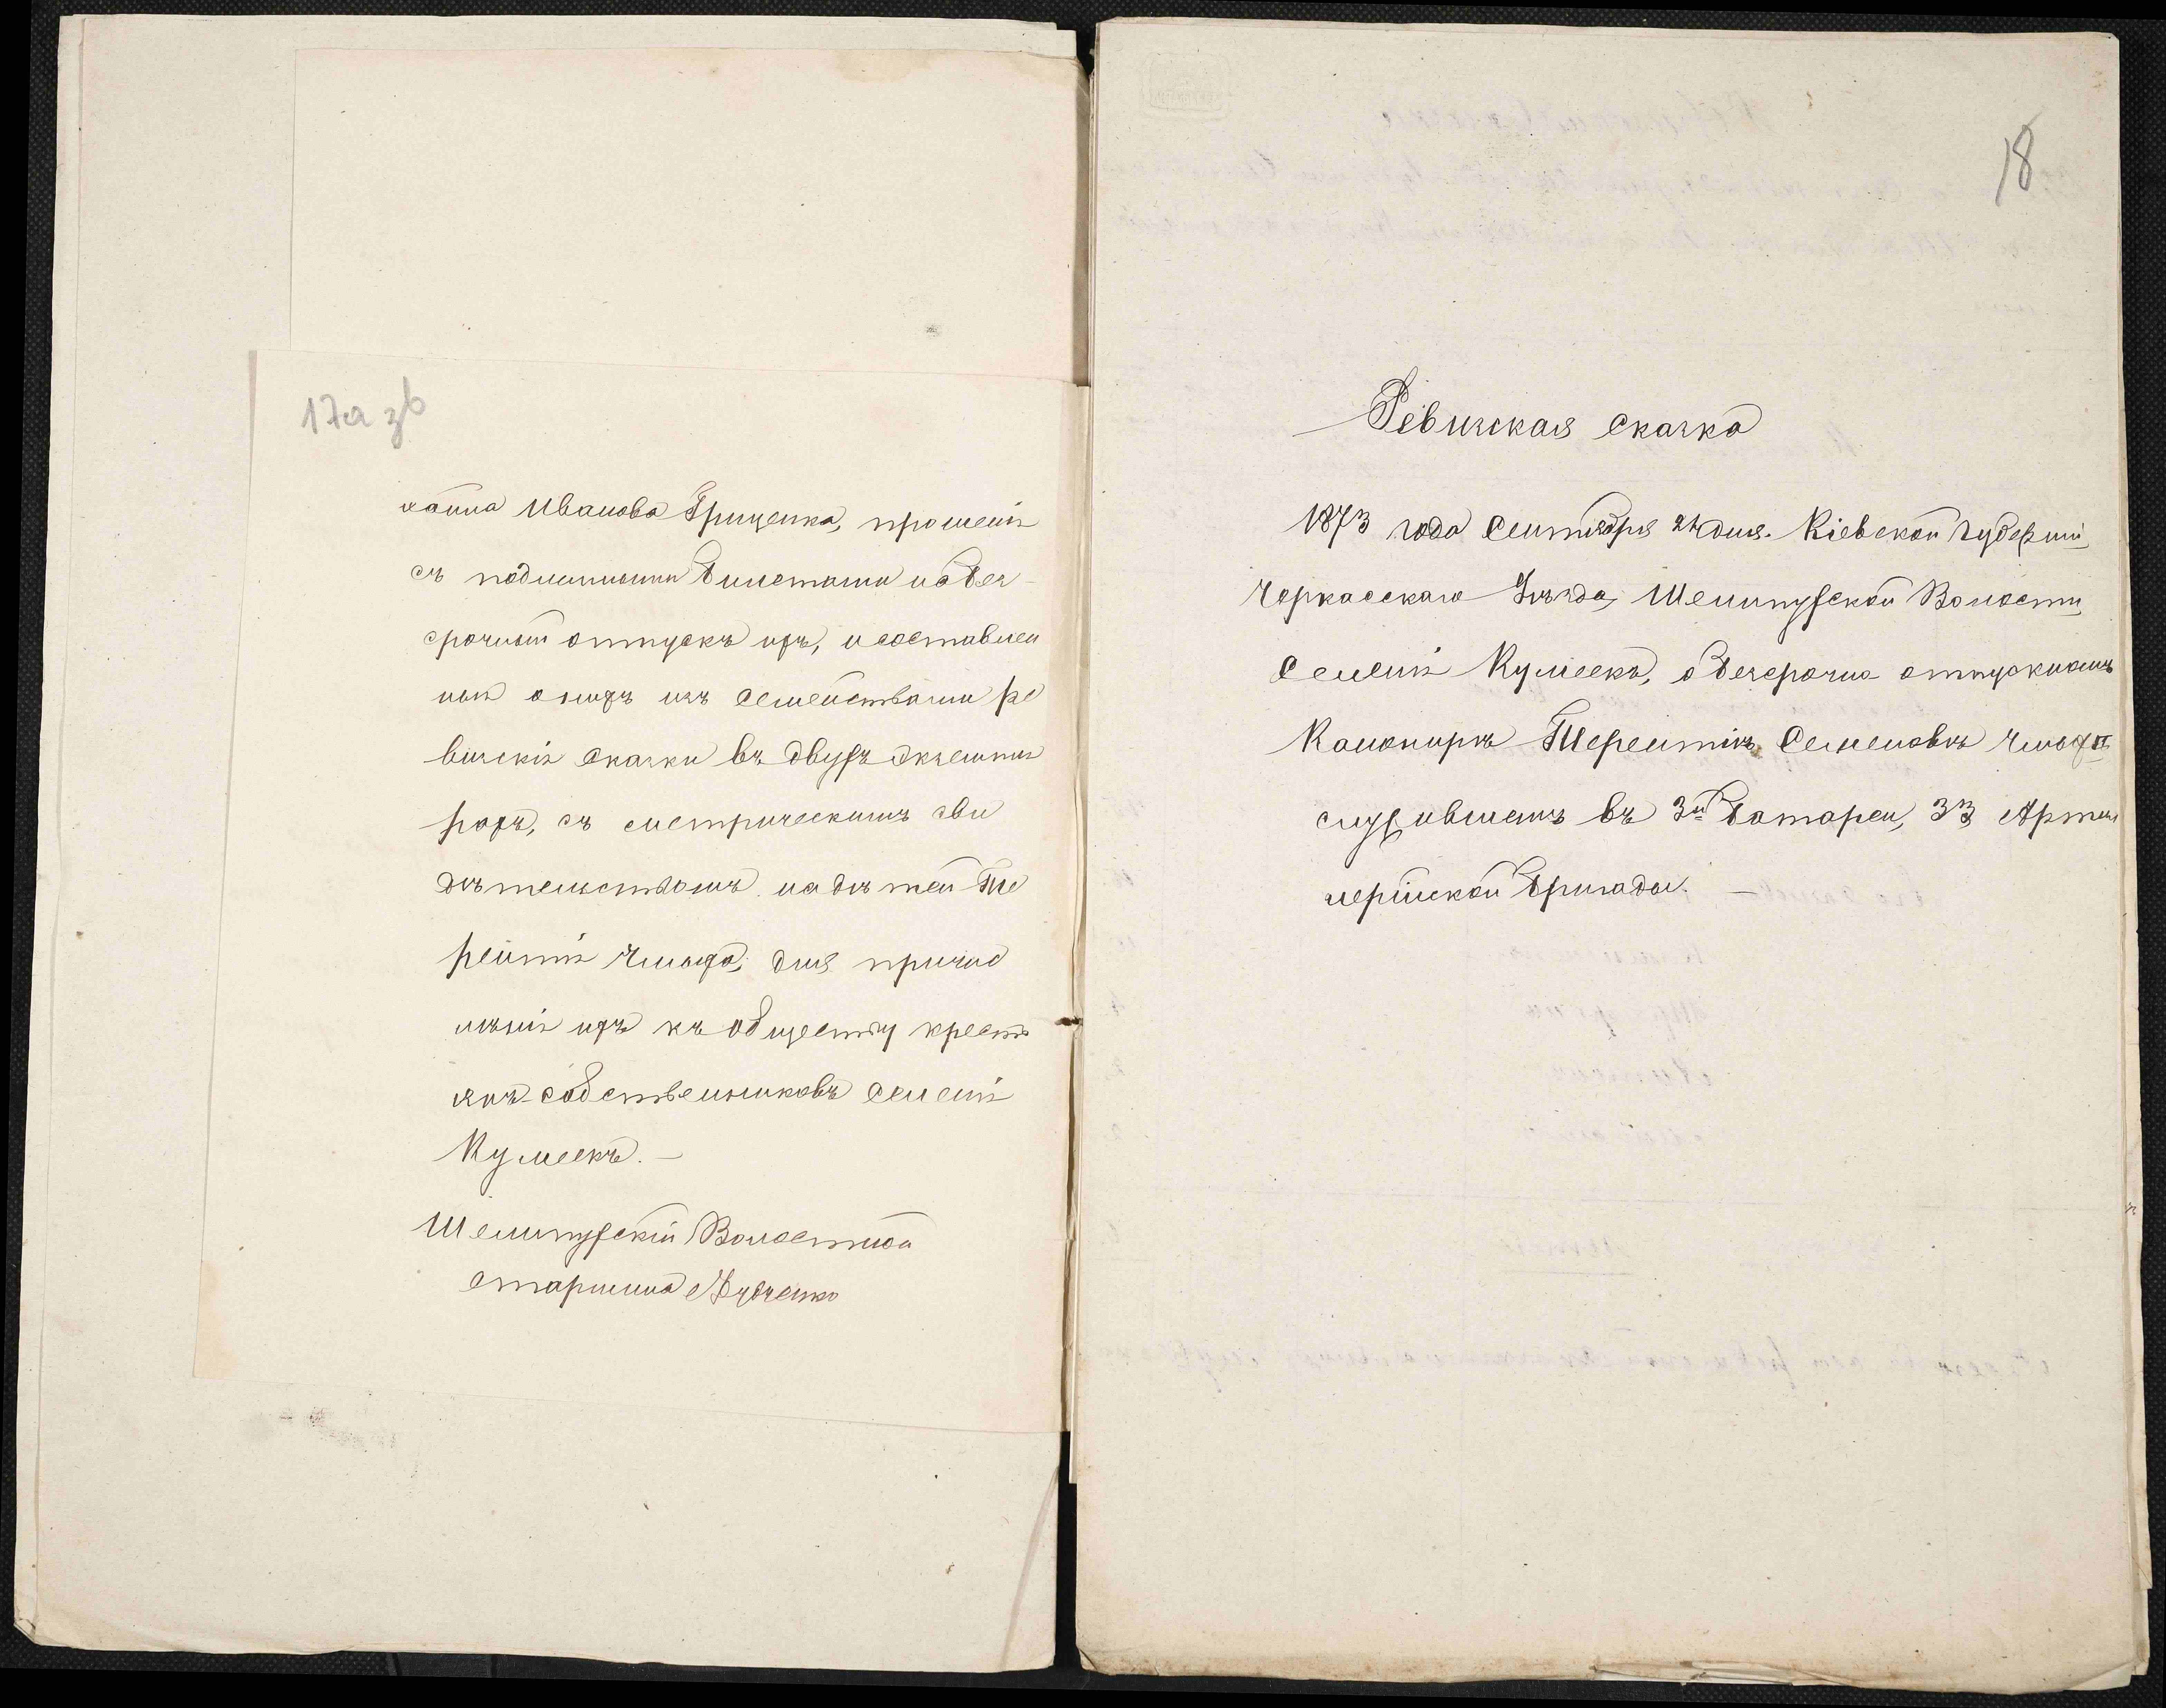 17а зв
ханна Иванова Гриценка, прошенія
съ подлинными билетами на без-
срочный отпускъ ихъ, и составлен
ныя о нихъ изъ семействами ре
визскія сказки въ двухъ экземпля
рахъ, съ метрическимъ сви
дѣтельствомъ на дѣтей Те
рентія Чмыха, для причис
ленія ихъ къ обществу кресть
янъ-собственниковъ селенія
Кумеекъ. —
Шелипухскій Волостной
Старшина
18
Ревизская сказка
1873 года Сентября 24 дня. Кіевской губерніи,
Черкасскаго Уѣзда, Шелипухской Волости,
Селенія Кумеекъ, о безсрочно отпускномъ
Канонирѣ Терентіѣ Семеновѣ Чмыхѣ
служившемъ въ 3й батареи, 33 Артил
лерійской бригады. —